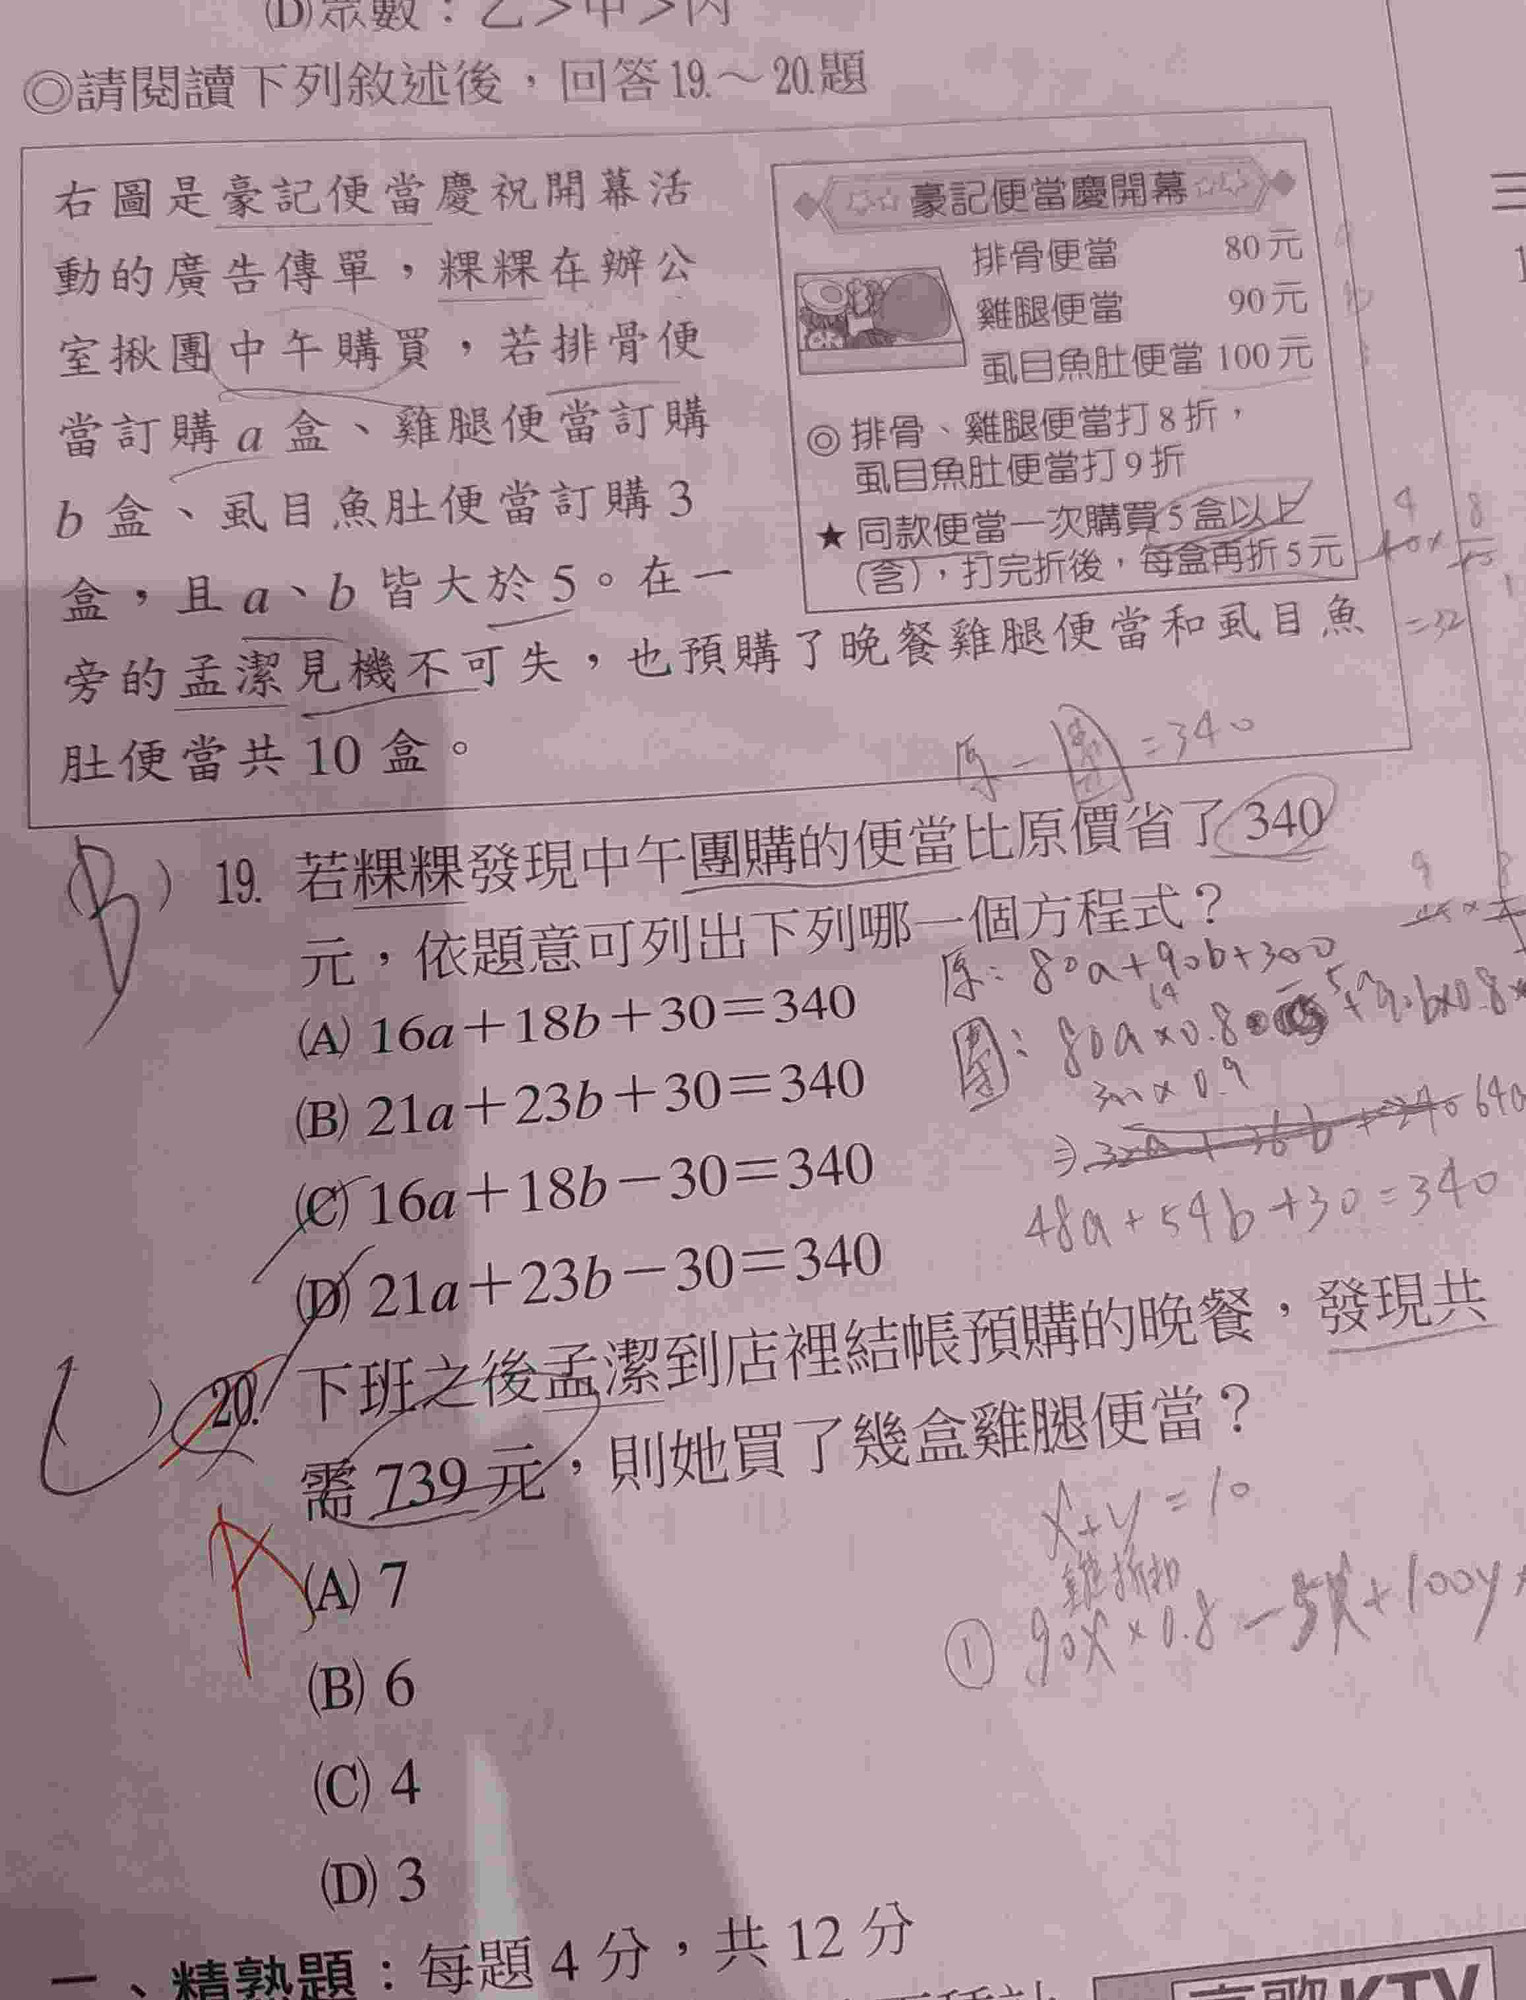 (D)眾數：乙＞甲＞丙
◎請閱讀下列敘述後，回答19.～20.題
右圖是豪記便當慶祝開幕活
動的廣告傳單，粿粿在辦公
室揪團中午購買，若排骨便
當訂購a盒、雞腿便當訂購
b盒、虱目魚肚便當訂購3
盒，且a、b皆大於5。在一
旁的孟潔見機不可失，也預購了晚餐雞腿便當和虱目魚
肚便當共10盒。
☆☆豪記便當慶開幕☆☆
排骨便當 80元
雞腿便當 90元
虱目魚肚便當 100元
◎排骨、雞腿便當打8折，
虱目魚肚便當打9折
★同款便當一次購買5盒以上
(含)，打完折後，每盒再折5元
=32
原－團=340
(B) 19. 若粿粿發現中午團購的便當比原價省了340
元，依題意可列出下列哪一個方程式？
(A) 16a＋18b＋30＝340
(B) 21a＋23b＋30＝340
(C) 16a＋18b－30＝340
(D) 21a＋23b－30＝340
原：80a+90b+300
300×0.9
48a+54b+30=340
20. 下班之後孟潔到店裡結帳預購的晚餐，發現共
需739元，則她買了幾盒雞腿便當？
A
(A) 7
(B) 6
(C) 4
(D) 3
x+y=10
雞折扣
① 90x×0.8－5x+100y
一、精熟題：每題4分，共12分
KTV